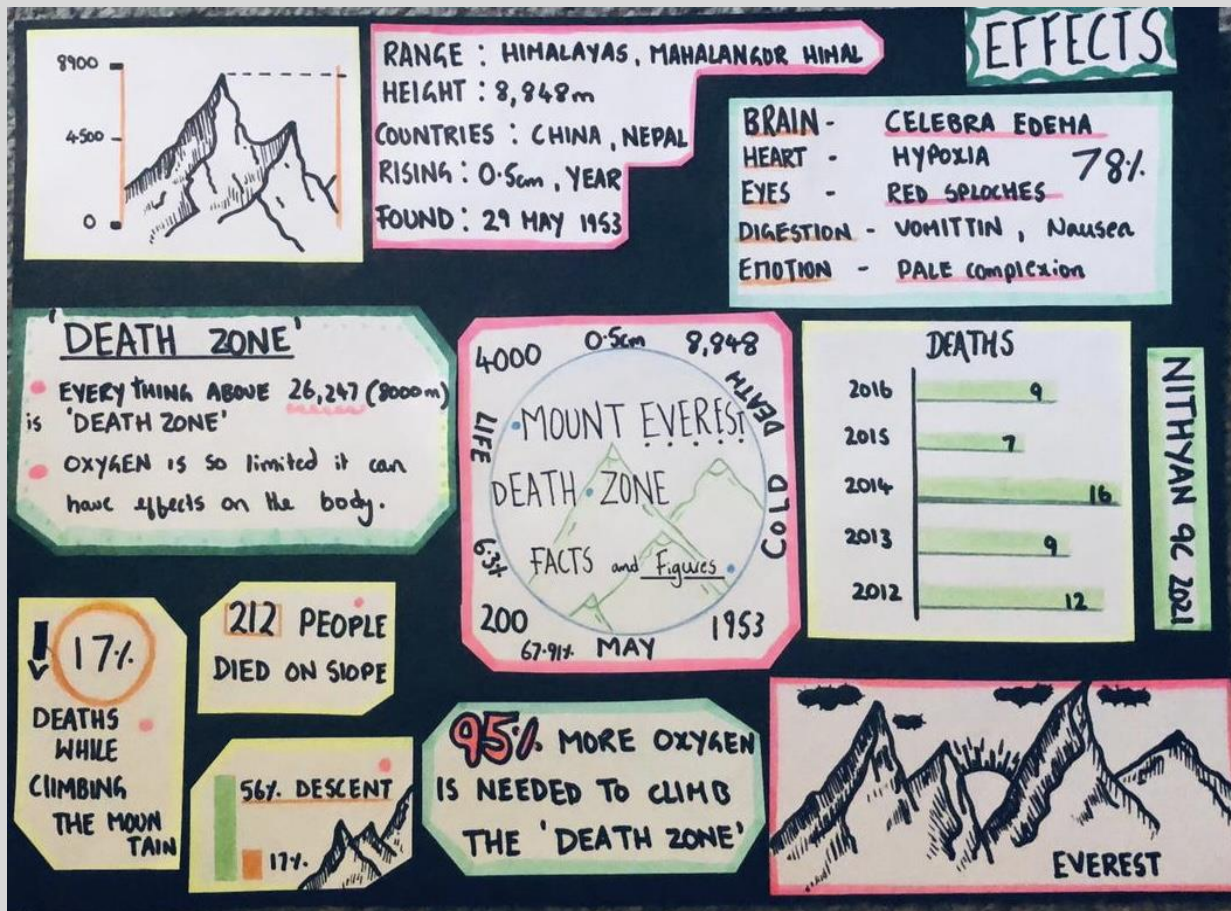 8900
4500
0
RANGE : HIMALAYAS, MAHALANGOR HIMAL
HEIGHT : 8,848m
COUNTRIES : CHINA, NEPAL
RISING : 0.5cm, YEAR
FOUND : 29 MAY 1953
EFFECTS
BRAIN - CELEBRA EDEMA
HEART - HYPOXIA 78%
EYES - RED SPLOCHES
DIGESTION - VOMITTIN, Nausea
EMOTION - PALE complexion
'DEATH ZONE'
EVERYTHING ABOVE 26,247 (8000m)
is 'DEATH ZONE'
OXYGEN IS so limited it can
have effects on the body.
4000 0.5cm 8,848
DEATH
LIFE
MOUNT EVEREST
DEATH ZONE
COLD
FACTS and Figures
6.3%
200
67.91% MAY
1953
DEATHS
2016 9
2015 7
2014 16
2013 9
2012 12
NITHYAN 9C 2021
17%
DEATHS
WHILE
CLIMBING
THE MOUN
TAIN
212 PEOPLE
DIED ON SlOPE
56% DESCENT
17%
95% MORE OXYGEN
IS NEEDED TO CLIMB
THE 'DEATH ZONE'
EVEREST